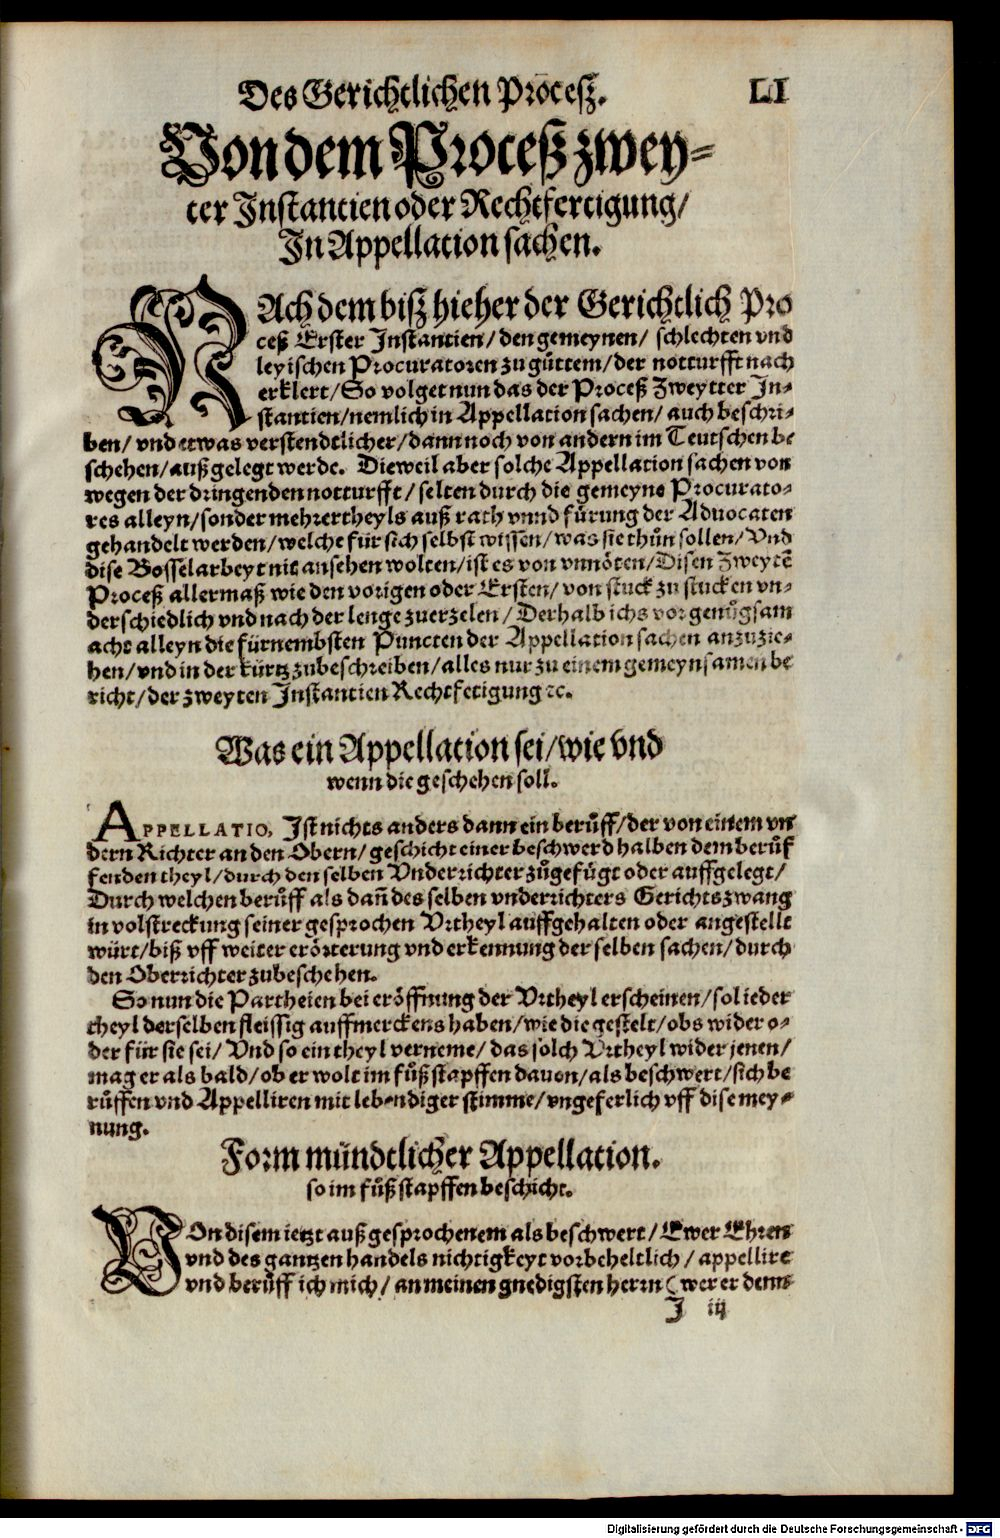 Des Gerichtlichen Process. LI
Von dem Proceß zwey-
ter Instantien oder Rechtfertigung/
In Appellation sachen.
NAch dem biß hieher der Gerichtlich Pro
ceß Erster Instantien/ den gemeynen/ schlechten vnd
leyischen Procuratoren zu gůttem/ der notturfft nach
erklert/ So volget nun das der Proceß Zweytter In-
stantien/ nemlich in Appellation sachen/ auch beschri-
ben/ vnd etwas verstendtlicher/ dann noch von andern im Teutschen be
schehen/ außgelegt werde. Dieweil aber solche Appellation sachen von
wegen der dringenden notturfft/ selten durch die gemeyne Procurato-
res alleyn/ sonder mehrertheyls auß rath vnnd fürung der Aduocaten
gehandelt werden/ welche für sich selbst wissen/ was sie thůn sollen/ Vnd
dise Bosselarbeyt nit ansehen wolten/ ist es von vnnöten/ Disen Zweytē
Proceß allermaß wie den vorigen oder Ersten/ von stuck zu stucken vn-
derschiedlich vnd nach der lenge zuerzelen/ Derhalb ichs vor genůgsam
acht alleyn die fürnembsten Puncten der Appellation sachen anzuzie-
hen/ vnd in der kürtz zubeschreiben/ alles nur zu einem gemeynsamen be
richt/ der zweyten Instantien Rechtfetigung ꝛc.
Was ein Appellation sei/ wie vnd
wenn die geschehen soll.
APPELLATIO, Ist nichts anders dann ein berůff/ der von einem vn
dern Richter an den Obern/ geschicht einer beschwerd halben dem berůf
fenden theyl/ durch den selben Vnderrichter zůgefügt oder auffgelegt/
Durch welchen berůff als dañ des selben vnderrichters Gerichtszwang
in volstreckung seiner gesprochen Vrtheyl auffgehalten oder angestellt
würt/ biß vff weiter erörterung vnd erkennung der selben sachen/ durch
den Oberrichter zubeschehen.
So nun die Partheien bei eröffnung der Vrtheyl erscheinen/ sol ieder
theyl derselben fleissig auffmerckens haben/ wie die gestelt/ obs wider o-
der für sie sei/ Vnd so ein theyl verneme/ das solch Vrtheyl wider jenen/
mag er als bald/ ob er wolt im fůßstapffen dauon/ als beschwert/ sich be
růffen vnd Appelliren mit lebendiger stimme/ vngeferlich vff dise mey-
nung.
Form mündtlicher Appellation.
so im fůßstapffen beschicht.
VOn disem ietzt außgesprochenem als beschwert/ Ewer Ehren
vnd des gantzen handels nichtigkeyt vorbeheltlich/ appellire
vnd berůff ich mich/ an meinen gnedigsten herrn (wer er denn
I iij
Digitalisierung gefördert durch die Deutsche Forschungsgemeinschaft - DFG